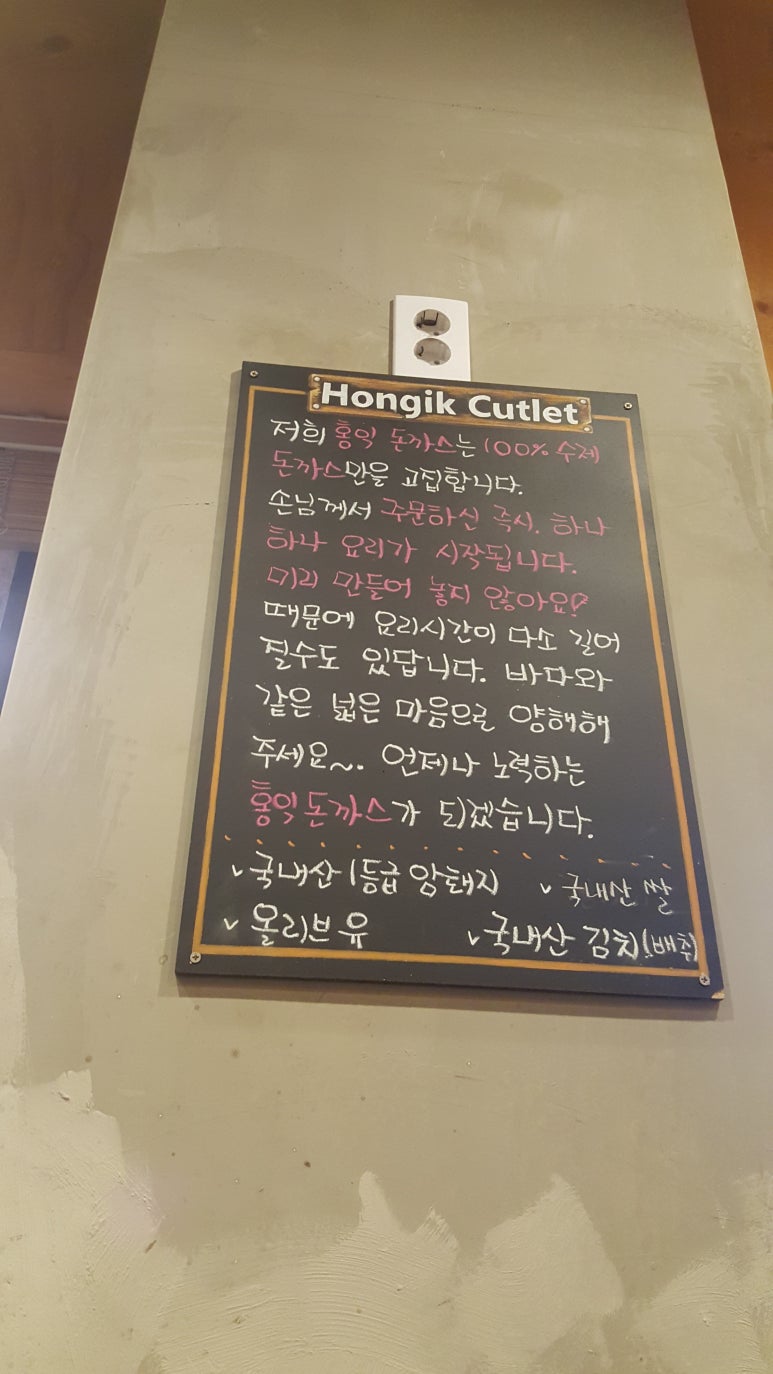 Hongik Cutlet
저희 홍익 돈까스는 100% 수제
돈까스만을 고집합니다.
손님께서 주문하신 즉시. 하나
하나 요리가 시작됩니다.
미리 만들어 놓지 않아요!
때문에 요리시간이 다소 길어
질수도 있답니다. 바다와
같은 넓은 마음으로 양해해
주세요~. 언제나 노력하는
홍익돈까스가 되겠습니다.
✓국내산 1등급 암퇘지 ✓국내산 쌀
✓올리브유 ✓국내산 김치(배추)